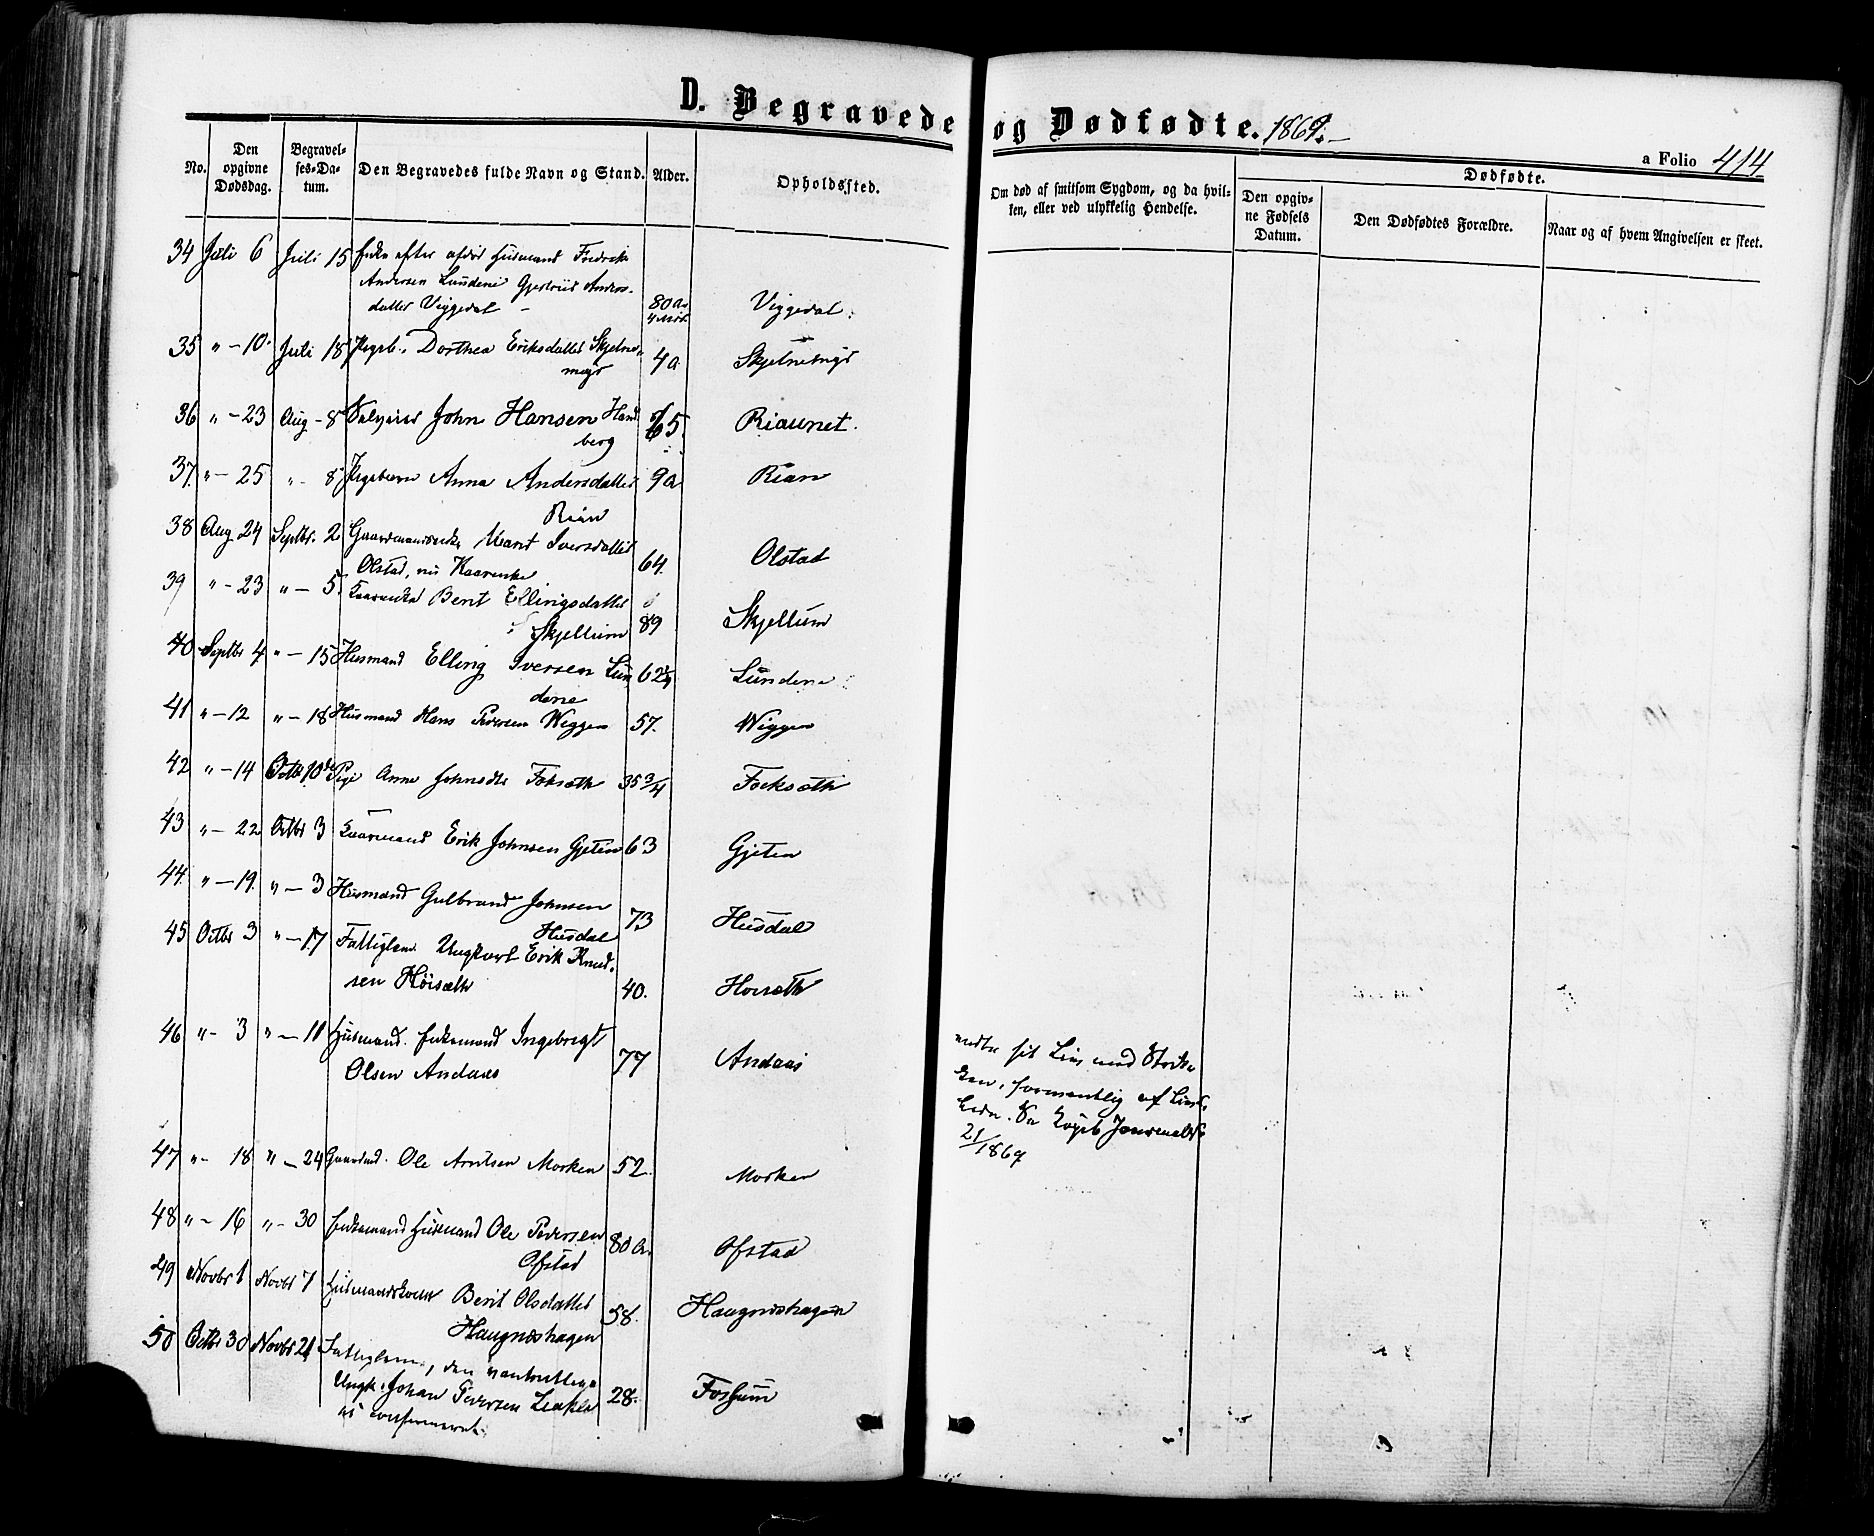 D. Begravede og Dødfødte. 1869.
a Folio 414
No. Den opgivne Dødsdag. Begravelses-Datum. Den Begravedes fulde Navn og Stand. Alder. Opholdssted.
Om død af smitsom Sygdom, og da hvilken, eller ved ulykkelig Hendelse.
Dødfødte.
Den opgivne Fødsels Datum. Den Dødfødtes Forældre. Naar og af hvem Angivelsen er skeet.
34 Juli 6 Juli 15 Enke efter afdøde Husmand Fredrik
Andersen Lundene Gjertrud Anders-
datter Viggedal 80 a. 4 Mdr. Viggedal
35 " - 10 Juli 18 Pigeb. Dorthea Eriksdatter Skjelnes-
myr 4 a Skjelnesmyr
36 " - 23 Aug - 8 John Hansen Hand
berg 65 Riaunet
37 " - 25 " 8 Pigebarn Anna Andersdatter
Rian 9 a Rian
38 Aug 24 Septbr. 2 Gaardmandsenke Marit Iversdatter
Olstad, nu Kaarenke 64. Olstad
39 " - 23 " - 5 Kaarenke Berit Ellingsdatter
Skjellum 89 Skjellum
40 Septbr 4 " - 15 Husmand Elling Iversen Lun
dene 62 Lundene
41 " - 12 " - 18 Husmand Hans Pedersen Wiggen 57. Wiggen
42 " - 14 Octbr 10de Pige Anne Johnsdtr Foksæth 35 3/4 Focksæth
43 " - 22 Octbr 3 Kaarmand Erik Johnsen Gjeten 63 Gjeten
44. " - 19. " - 3 Husmand Gulbrand Johnsen
Husdal 73 Husdal
45 Octbr 3 " - 17 Fattiglem Ungkarl Erik Knud-
sen Höisæth 40. Hoisæth
46 " - 3 " - 11 Husmand. Enkemand Ingebrigt
Olsen Andaas 77 Andaas
endte sit Liv med Strik-
ken, formentlig af Livs-
lede. Se Kopib Journal
21/1869
47 " - 18 " - 24 Gaardmd. Ole Arntsen Morken 52. Morken
48 " - 16 " - 30 Enkemand Husmand Ole Pedersen
Ofstad 80 a. Ofstad
49 Novbr 1 Novbr 7 Husmandskone Berit Olsdatter
Haugneshagen 58. Haugneshagen
50 Octbr 30 Novbr 21 Fattiglem, den vanvittige
Ungk. Johan Pedersen
confirmeret. 28. Fossum